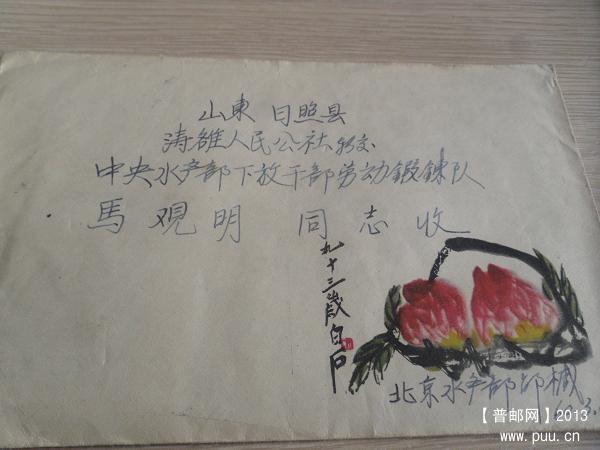 山東 日照县
涛雒人民公社 转交
中央水产部下放干部劳动鍛鍊队
馬观明 同志收
九十三歲白石
北京水产部邱械
【普邮网】2013
www.puu.cn